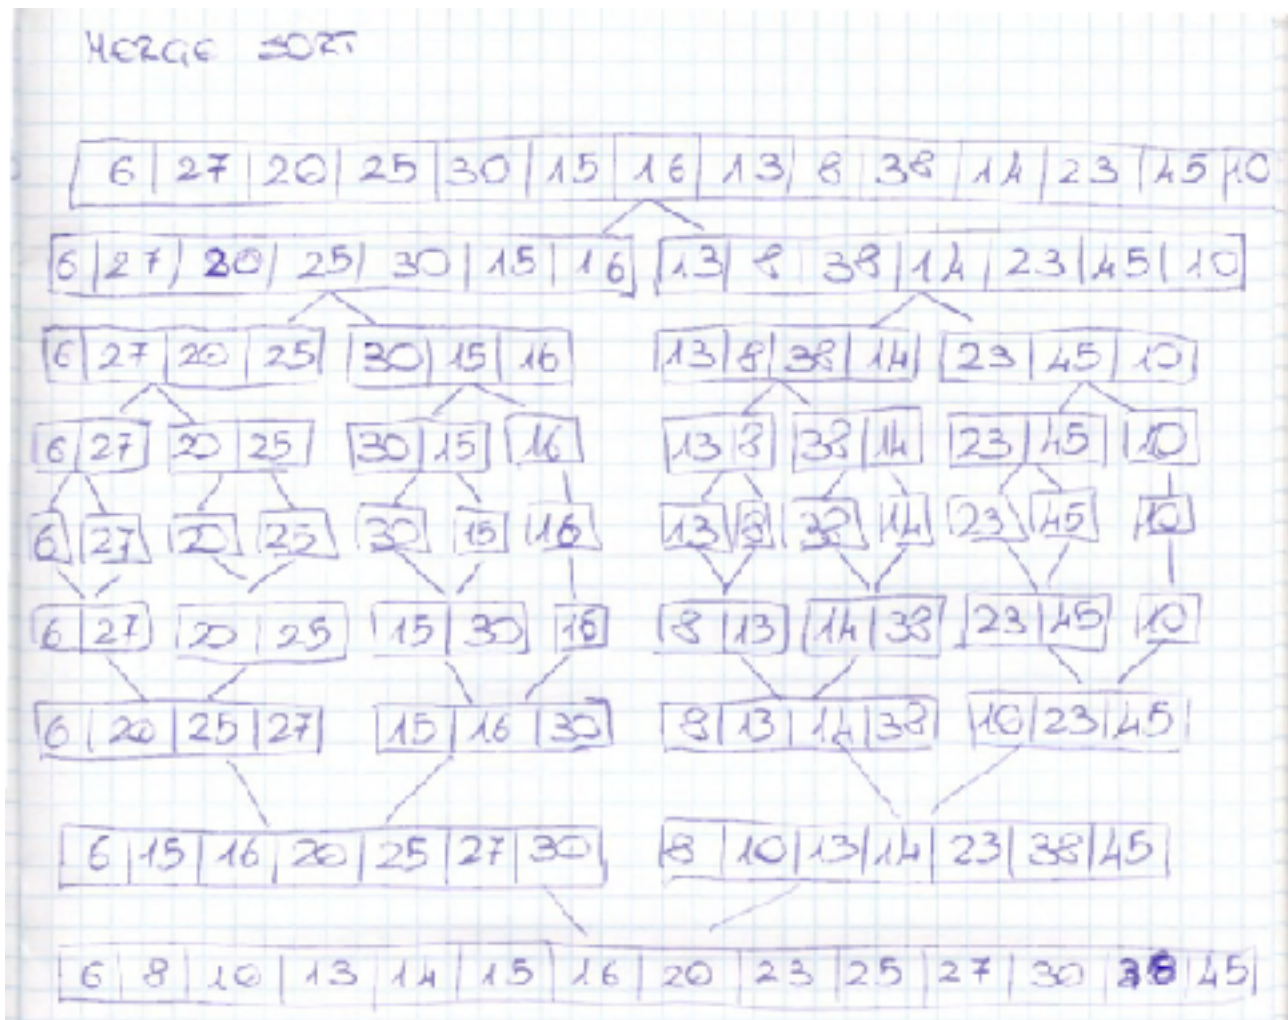 MERGE SORT
6 27 20 25 30 15 16 13 8 38 14 23 45 10
6 27 20 25 30 15 16 13 8 38 14 23 45 10
6 27 20 25 30 15 16 13 8 38 14 23 45 10
6 27 20 25 30 15 16 13 8 38 14 23 45 10
6 27 20 25 30 15 16 13 8 38 14 23 45 10
6 27 20 25 15 30 16 8 13 14 38 23 45 10
6 20 25 27 15 16 30 8 13 14 38 10 23 45
6 15 16 20 25 27 30 8 10 13 14 23 38 45
6 8 10 13 14 15 16 20 23 25 27 30 38 45